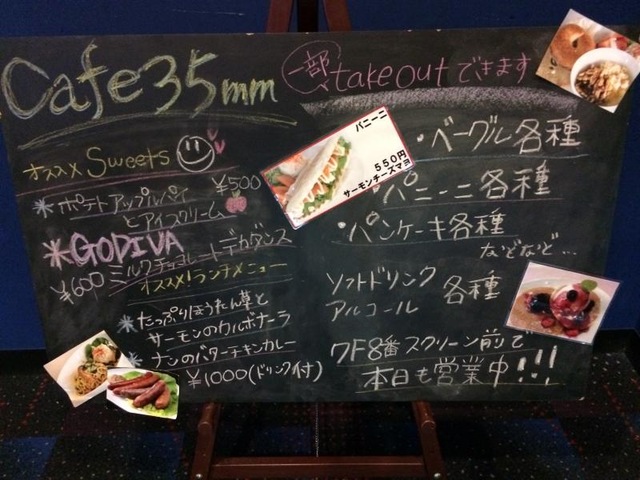 Cafe35mm
オススメ Sweets
＊ポテトアップルパイ ¥500
とアイスクリーム
＊GODIVA
¥600 ミルクチョコレートデカダンス
オススメ!ランチメニュー
＊たっぷりほうれん草と
サーモンのカルボナーラ
＊ナンのバターチキンカレー
¥1000(ドリンク付)
一部 take outできます
パニーニ
550円
サーモンチーズマヨ
・ベーグル各種
・パニーニ各種
・パンケーキ各種
などなど…
ソフトドリンク
アルコール 各種
7F8番スクリーン前で
本日も営業中!!!